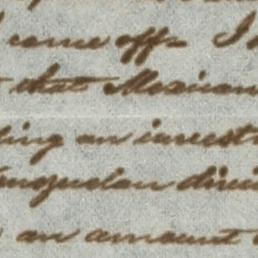 came off. I
that Mexican
ing an invest
an amount